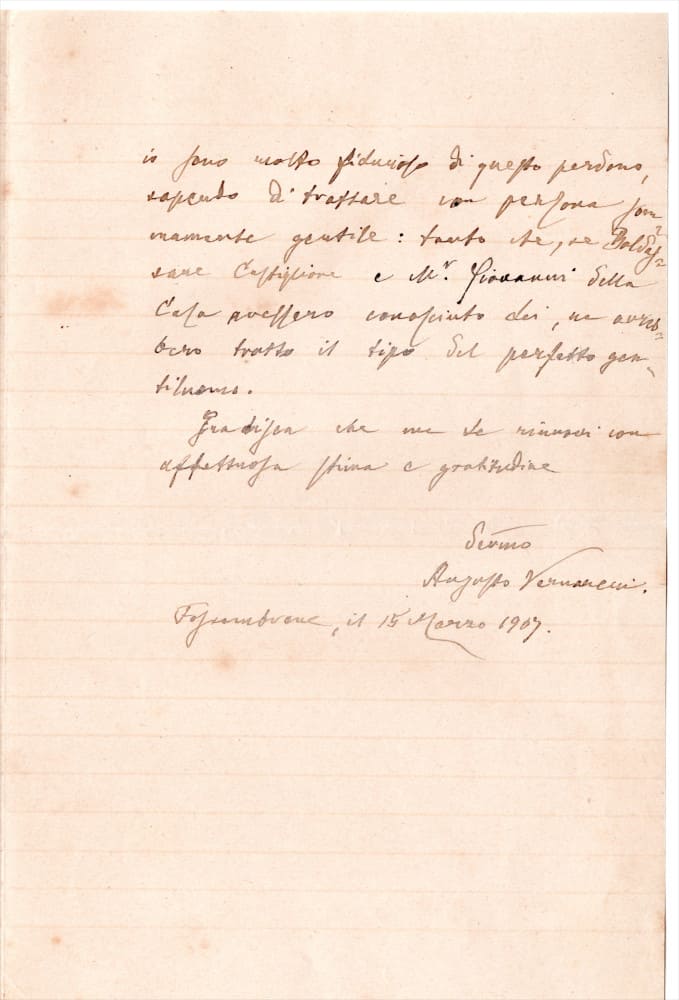 io sono molto fiducioso di questo perdono,
sapendo di trattare con persona som=
mamente gentile: tanto che, se Baldas=
sare Castiglione e Mr. Giovanni della
Casa avessero conosciuto Lei, ne avreb=
bero tratto il tipo del perfetto gen=
tiluomo.
Gradisca che me le rinnovi con
affettuosa stima e gratitudine
Devmo
Augusto Vernarecci.
Fossombrone, il 15 Marzo 1907.